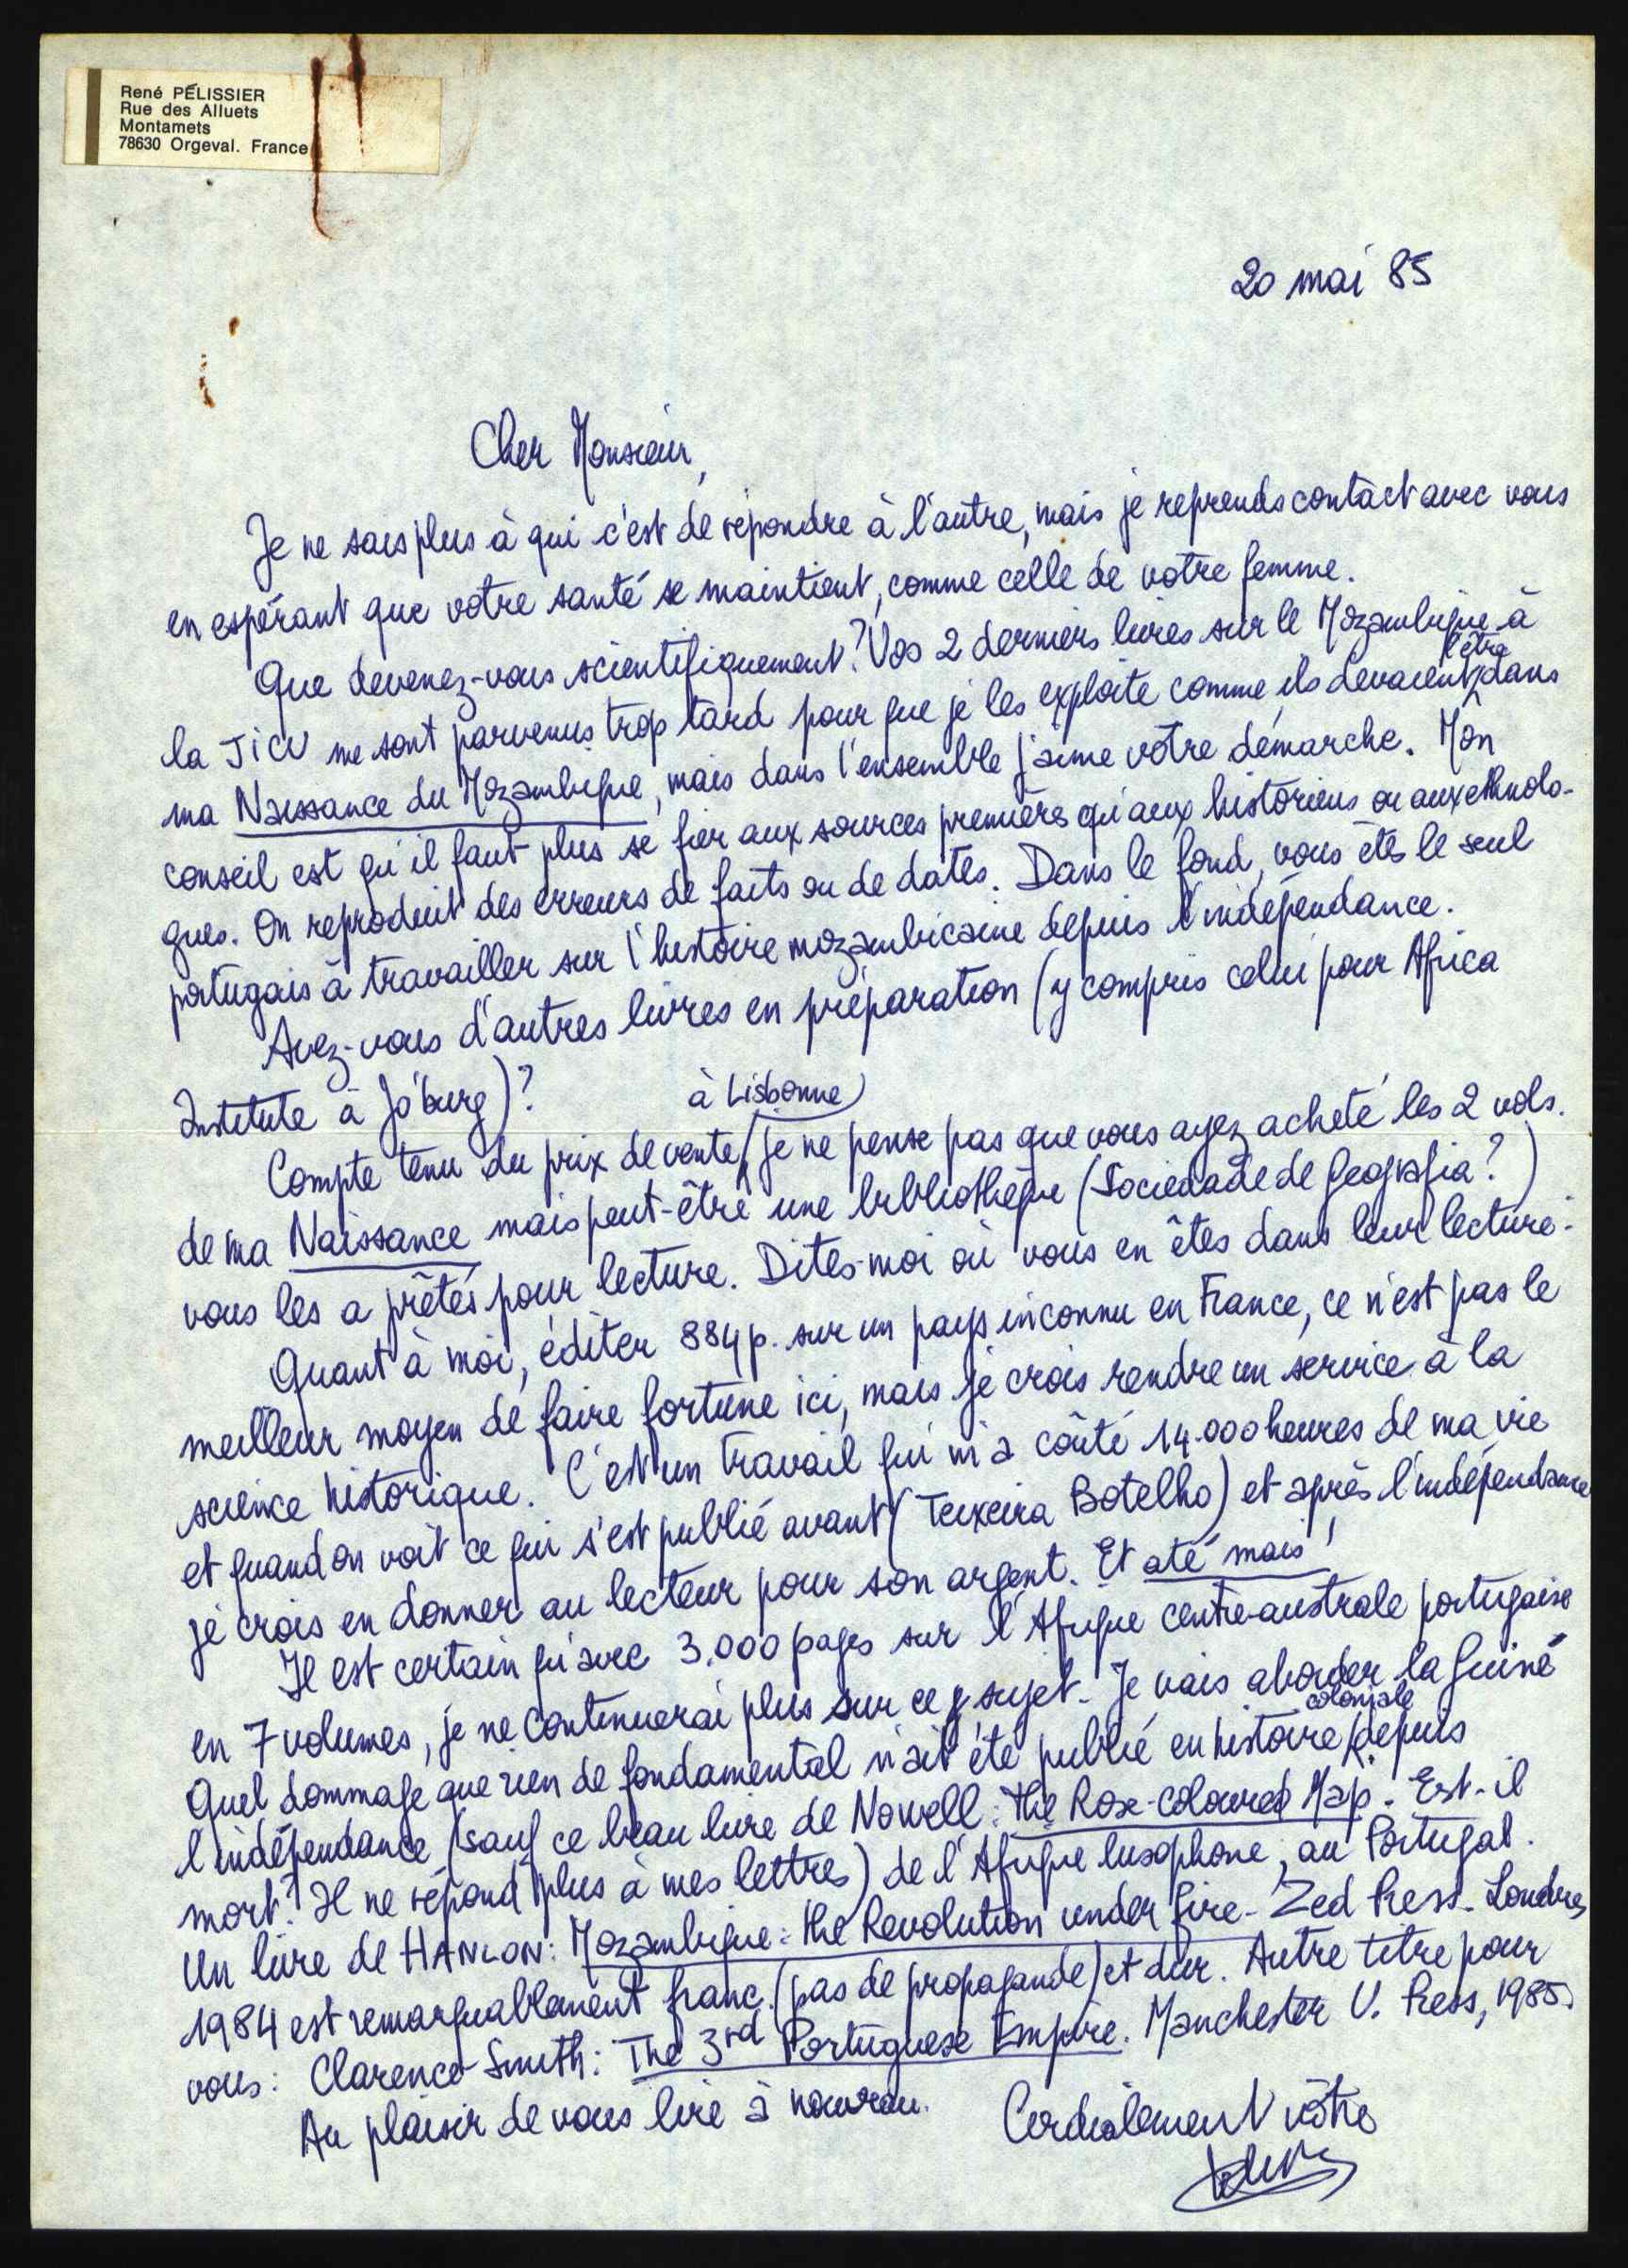 René PÉLISSIER
Rue des Alluets
Montamets
78630 Orgeval. France
20 mai 85
Cher Monsieur,
Je ne sais plus à qui c'est de répondre à l'autre, mais je reprends contact avec vous
en espérant que votre santé se maintient, comme celle de votre femme.
Que devenez-vous scientifiquement? Vos 2 derniers livres sur le Mozambique à
la JICU me sont parvenus trop tard pour que je les exploite comme ils devaient l'être dans
ma Naissance du Mozambique, mais dans l'ensemble j'aime votre démarche. Mon
conseil est qu'il faut plus se fier aux sources premières qu'aux historiens ou aux ethnolo-
gues. On reproduit des erreurs de faits ou de dates. Dans le fond, vous êtes le seul
portugais à travailler sur l'histoire mozambicaine depuis l'indépendance.
Avez-vous d'autres livres en préparation (y compris celui pour Africa
Institute à Jo'burg)?
Compte tenu du prix de vente à Lisbonne je ne pense pas que vous ayez acheté les 2 vols.
de ma Naissance mais peut-être une bibliothèque (Sociedade de Geografia?)
vous les a prêtés pour lecture. Dites-moi où vous en êtes dans leur lecture.
Quant à moi, éditer 884 p. sur un pays inconnu en France, ce n'est pas le
meilleur moyen de faire fortune ici, mais je crois rendre un service à la
science historique. C'est un travail qui m'a coûté 14.000 heures de ma vie
et quand on voit ce qui s'est publié avant (Teixeira Botelho) et après l'indépendance
je crois en donner au lecteur pour son argent. Et até mais!
Il est certain qu'avec 3.000 pages sur l'Afrique centre-australe portugaise
en 7 volumes, je ne continuerai plus sur ce sujet. Je vais aborder la Guiné
Quel dommage que rien de fondamental n'ait été publié en histoire coloniale depuis
l'indépendance (sauf ce beau livre de Nowell: The Rose-coloured Map. Est-il
mort? Il ne répond plus à mes lettres) de l'Afrique lusophone, au Portugal.
Un livre de HANLON: Mozambique: the Revolution under fire - Zed Press - Londres
1984 est remarquablement franc (pas de propagande) et dur. Autre titre pour
vous: Clarence-Smith: The 3rd Portuguese Empire. Manchester U. Press, 1985.
Au plaisir de vous lire à nouveau.
Cordialement vôtre